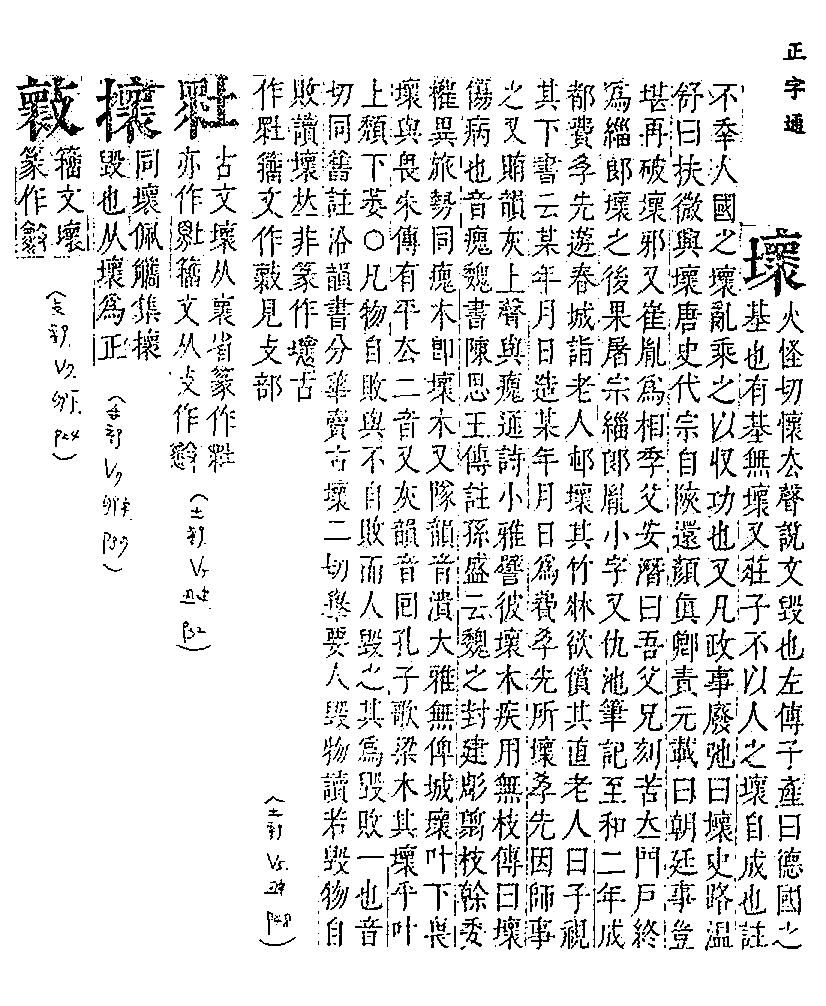 正字通
壞
火怪切懷去聲說文毀也左傳子產曰德國之
基也有基無壞又莊子不以人之壞自成也註
不幸人國之壞亂乘之以収功也又凡政事廢弛曰壞史路温
舒曰扶微興壞唐史代宗自陝還顏真卿責元載曰朝廷事豈
堪再破壞邪又崔胤為相季父安潛曰吾父兄刻苦立門戸終
為緇郎壞之後果屠宗緇郎胤小字又仇池筆記至和二年成
都費孝先遊春城詣老人邨壞其竹牀欲償其直老人曰子視
其下書云某年月日造某年月日為費孝先所壞孝先因師事
之又賄韻灰上聲與瘣通詩小雅譬彼壞木疾用無枝傳曰壞
傷病也音瘣魏書陳思王傳註孫盛云魏之封建彫翦枝榦委
權異族勢同瘣木卽壞木又隊韻音潰大雅無俾城壞叶下畏
壞與畏朱傳有平去二音又灰韻音回孔子歌梁木其壞平叶
上頹下萎○凡物自敗與不自敗而人毀之其為毀敗一也音
切同舊註沿韻書分華賣古壞二切舉要人毀物讀若毀物自
敗讀壞𠀤非篆作壞古
作𡊅籒文作𣀩見攴部
(土部 V5 P48)
𡊅
古文壞从褱省篆作𡊅
亦作籒文从攴作
(土部 V5 P52)
攘
同壞佩觿集攘
毀也从壞為正
(P59)
𣀩
籒文壞
篆作
(P24)